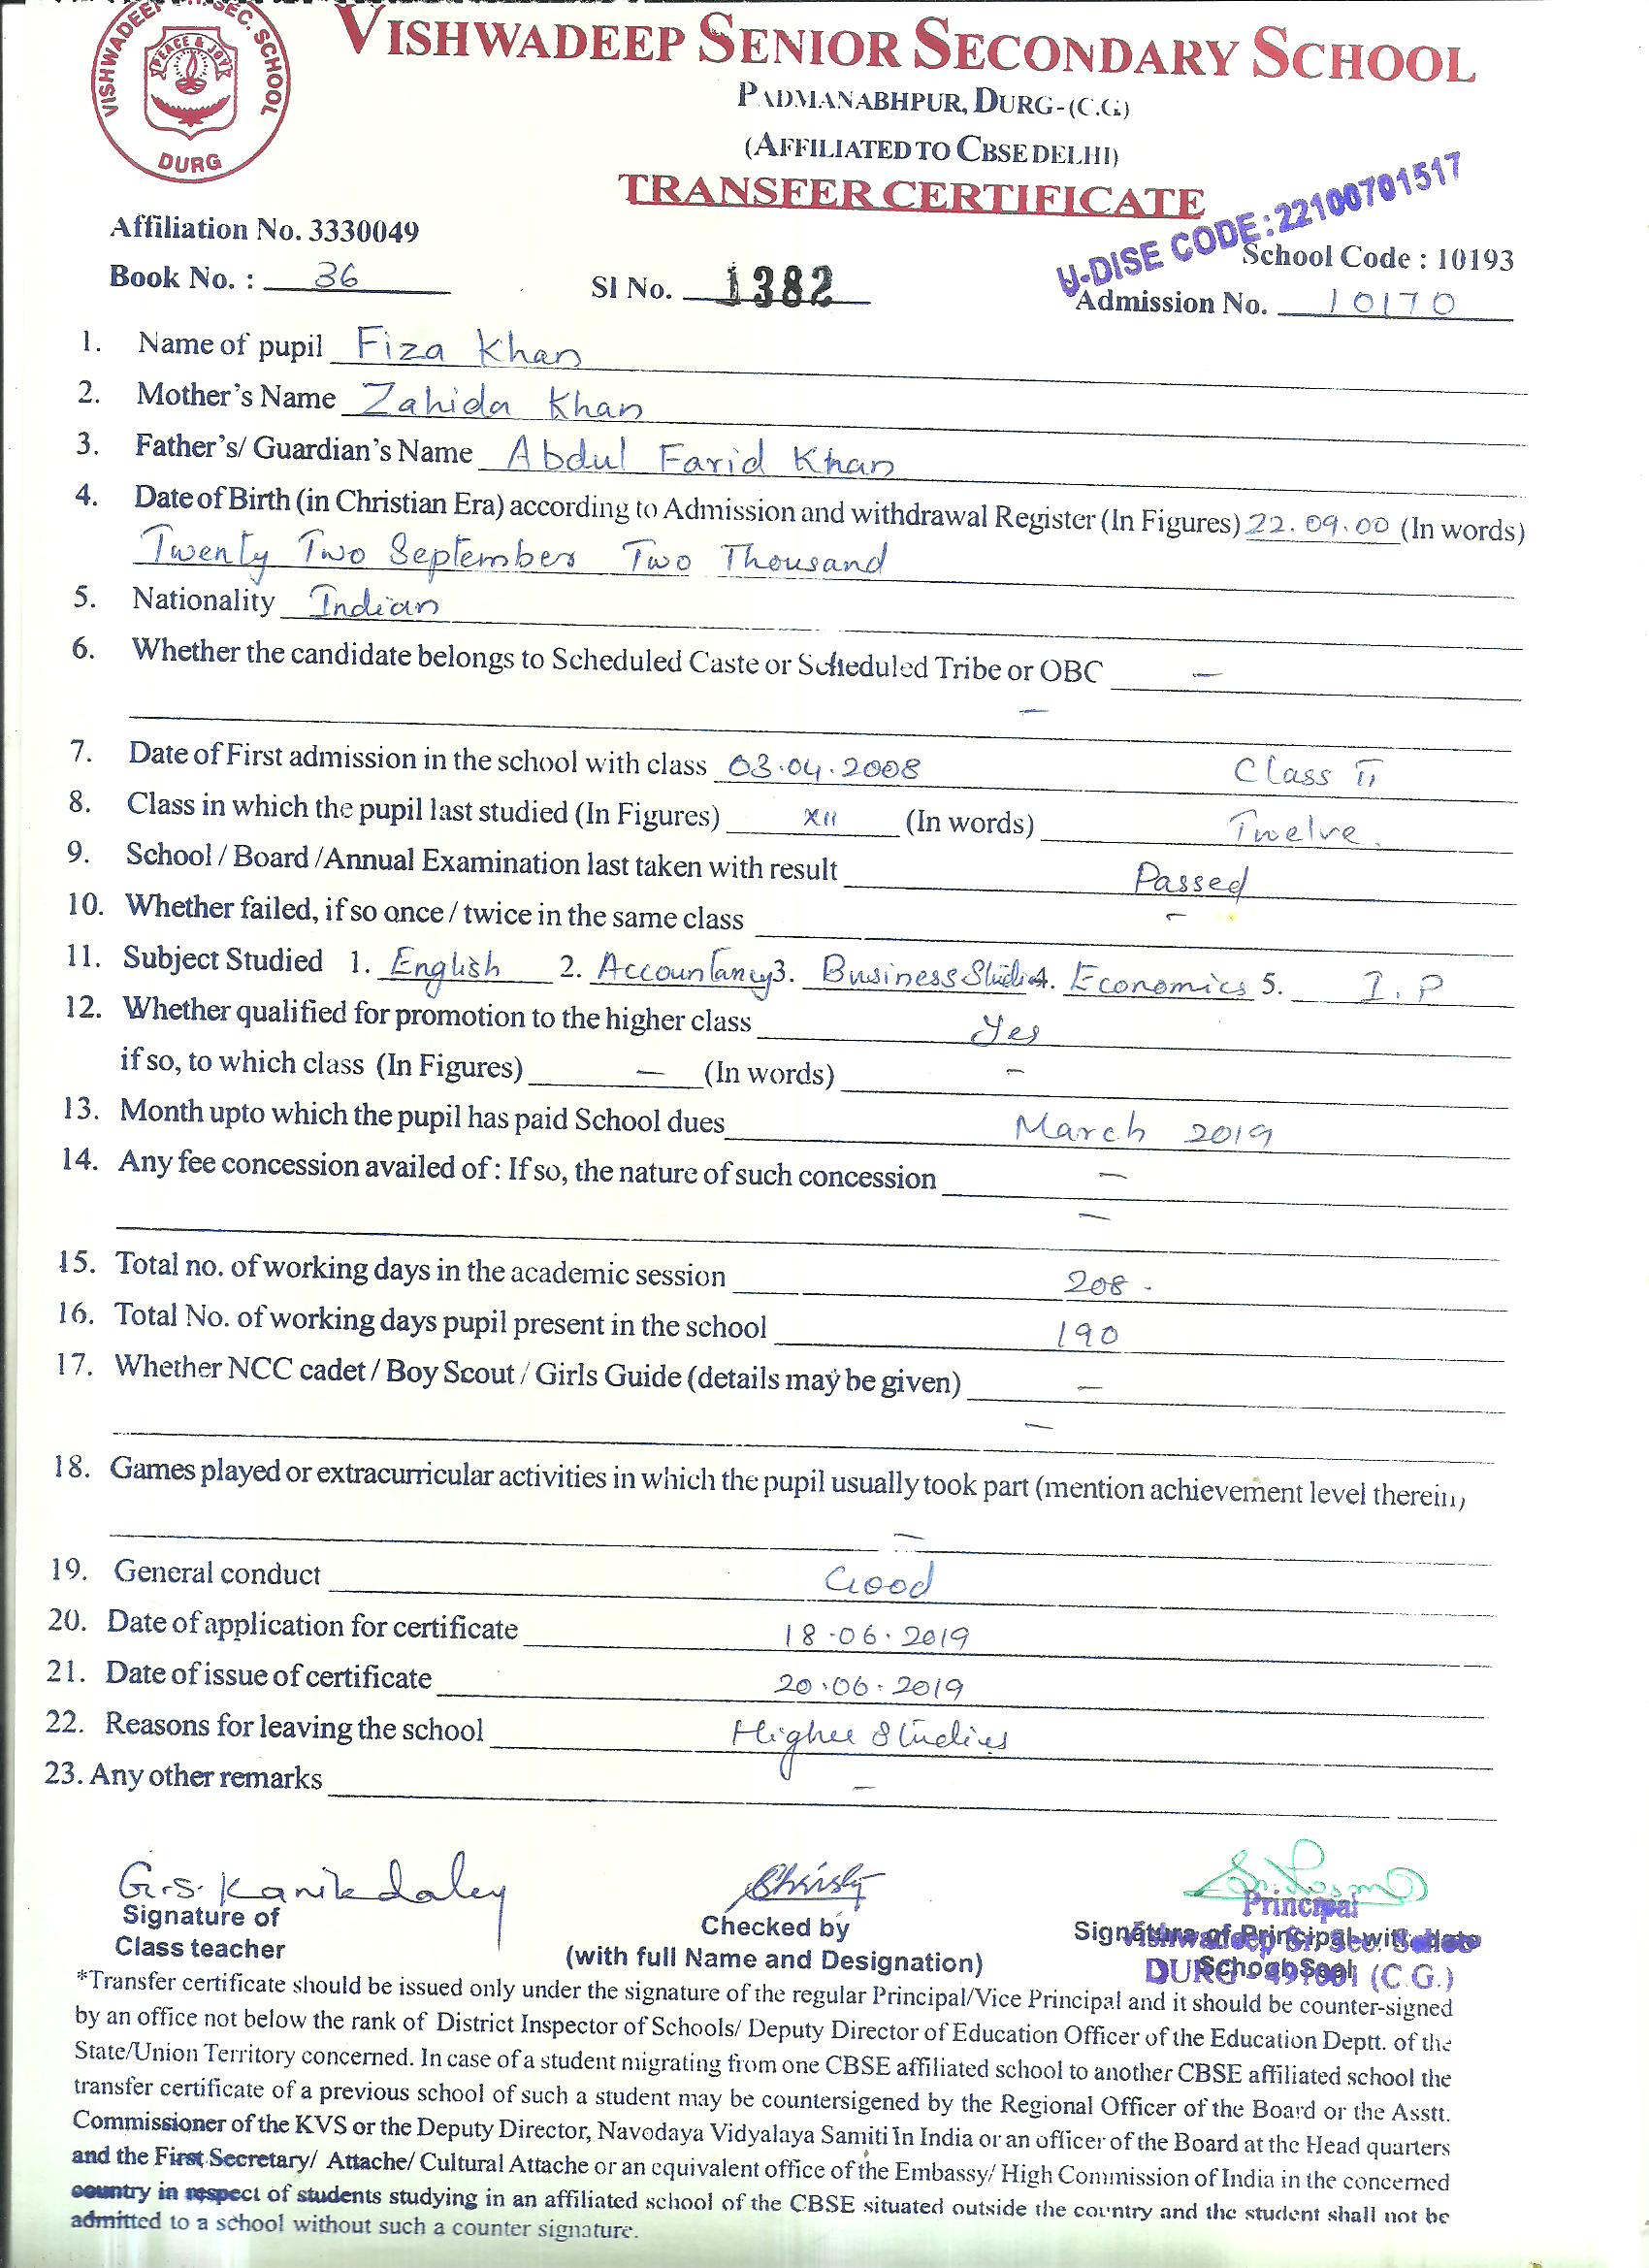 VISHWADEEP SR. SEC. SCHOOL
PEACE & JOY
DURG
VISHWADEEP SENIOR SECONDARY SCHOOL
PADMANABHPUR, DURG-(C.G)
(AFFILIATED TO CBSE DELHI)
TRANSFER CERTIFICATE
U-DISE CODE:22100701517
Affiliation No. 3330049
School Code : 10193
Book No. : 36 Sl No. 1382 Admission No. 10170
1. Name of pupil Fiza Khan
2. Mother's Name Zahida Khan
3. Father's/ Guardian's Name Abdul Farid Khan
4. Date of Birth (in Christian Era) according to Admission and withdrawal Register (In Figures) 22.09.00 (In words)
Twenty Two September Two Thousand
5. Nationality Indian
6. Whether the candidate belongs to Scheduled Caste or Scheduled Tribe or OBC —
—
7. Date of First admission in the school with class 03.04.2008 Class II
8. Class in which the pupil last studied (In Figures) XII (In words) Twelve.
9. School / Board /Annual Examination last taken with result Passed
10. Whether failed, if so once / twice in the same class -
11. Subject Studied 1. English 2. Accountancy 3. Business Studies 4. Economics 5. I.P
12. Whether qualified for promotion to the higher class Yes
if so, to which class (In Figures) — (In words) -
13. Month upto which the pupil has paid School dues March 2019
14. Any fee concession availed of : If so, the nature of such concession —
—
15. Total no. of working days in the academic session 208 -
16. Total No. of working days pupil present in the school 190
17. Whether NCC cadet / Boy Scout / Girls Guide (details may be given) —
—
18. Games played or extracurricular activities in which the pupil usually took part (mention achievement level therein)
—
19. General conduct Good
20. Date of application for certificate 18.06.2019
21. Date of issue of certificate 20.06.2019
22. Reasons for leaving the school Higher Studies
23. Any other remarks —
G.S. Kanikdaley Christy
Signature of
Class teacher
Checked by
(with full Name and Designation)
Principal
Signature of Principal with date
School Seal
Vishwadeep Sr. Sec. School
DURG - 491001 (C.G.)
*Transfer certificate should be issued only under the signature of the regular Principal/Vice Principal and it should be counter-signed
by an office not below the rank of District Inspector of Schools/ Deputy Director of Education Officer of the Education Deptt. of the
State/Union Territory concerned. In case of a student migrating from one CBSE affiliated school to another CBSE affiliated school the
transfer certificate of a previous school of such a student may be countersigened by the Regional Officer of the Board or the Asstt.
Commissioner of the KVS or the Deputy Director, Navodaya Vidyalaya Samiti in India or an officer of the Board at the Head quarters
and the First Secretary/ Attache/ Cultural Attache or an equivalent office of the Embassy/ High Commission of India in the concerned
country in respect of students studying in an affiliated school of the CBSE situated outside the country and the student shall not be
admitted to a school without such a counter signature.